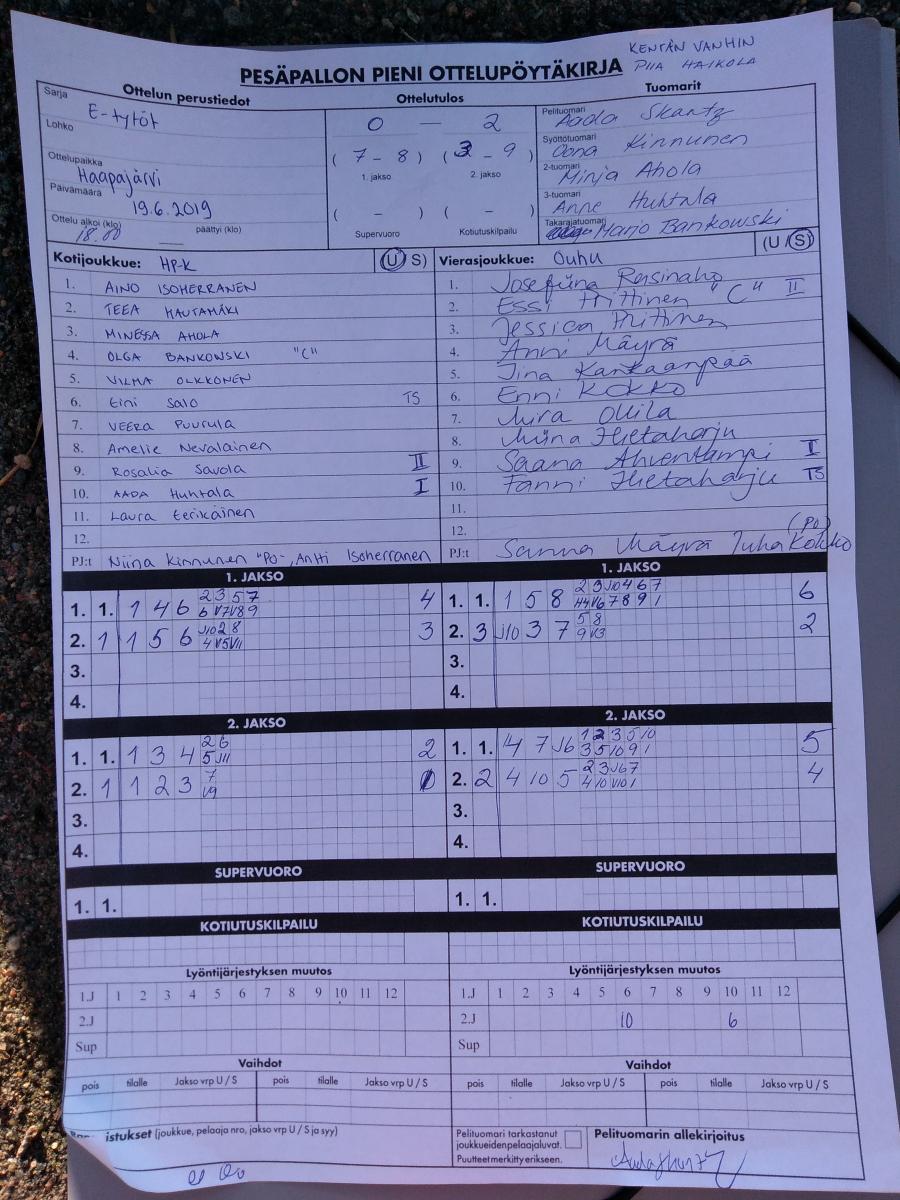 KENTÄN VANHIN
PIIA HAIKOLA
PESÄPALLON PIENI OTTELUPÖYTÄKIRJA
Ottelun perustiedot
Sarja E-tytöt
Lohko
Ottelupaikka Haapajärvi
Päivämäärä 19.6.2019
Ottelu alkoi (klo) 18.00 päättyi (klo)
Ottelutulos
0 — 2
( 7 - 8 ) ( 3 - 9 )
1. jakso 2. jakso
( - ) ( - )
Supervuoro Kotiutuskilpailu
Tuomarit
Pelituomari Aada Skantz
Syöttötuomari Oona Kinnunen
2-tuomari Minja Ahola
3-tuomari Anne Huhtala
Takarajatuomari Marjo Bankowski
Kotijoukkue: HP-K (U S)
1. AINO ISOHERRANEN
2. TEEA HAUTAMÄKI
3. MINESSA AHOLA
4. OLGA BANKOWSKI "C"
5. VILMA OLKKONEN
6. Eini Salo TS
7. VEERA PUURULA
8. Amelie Nevalainen
9. Rosalia Savola II
10. AADA Huhtala I
11. Laura Eerikäinen
12.
PJ:t Niina Kinnunen "PO", Antti Isoherranen
Vierasjoukkue: Ouhu (U S)
1. Josefiina Reisinaho
2. Essi Hiittinen "C" II
3. Jessica Hiittinen
4. Anni Mäyrä
5. Jina Kankaanpää
6. Enni Kokko
7. Mira Ollila
8. Miina Hietaharju
9. Saana Ahventampi I
10. Fanni Hietaharju TS
11.
12.
PJ:t Sanna Mäyrä Juha Kokko (PO)
1. JAKSO
1. 1. 1 4 6 2 3 5 7 4
6 V7 V8 9
2. 1 1 5 6 J10 2 8 3
4 V5 V11
3.
4.
1. JAKSO
1. 1. 1 5 8 2 3 J10 4 6 7 6
H4 V6 7 8 9 1
2. 3 J10 3 7 5 8 2
9 V3
3.
4.
2. JAKSO
1. 1. 1 3 4 2 6 2
5 J11
2. 1 1 2 3 7
V9
3.
4.
2. JAKSO
1. 1. 4 7 J6 1 2 3 5 10 5
3 5 10 9 1
2. 2 4 10 5 2 3 J6 7 4
4 10 V10 1
3.
4.
SUPERVUORO
1. 1.
SUPERVUORO
1. 1.
KOTIUTUSKILPAILU
KOTIUTUSKILPAILU
Lyöntijärjestyksen muutos
1.J 1 2 3 4 5 6 7 8 9 10 11 12
2.J
Sup
Lyöntijärjestyksen muutos
1.J 1 2 3 4 5 6 7 8 9 10 11 12
2.J 10 6
Sup
Vaihdot
pois tilalle Jakso vrp U / S pois tilalle Jakso vrp U / S
Vaihdot
pois tilalle Jakso vrp U / S pois tilalle Jakso vrp U / S
istukset (joukkue, pelaaja nro, jakso vrp U / S ja syy)
Pelituomari tarkastanut
joukkueiden pelaajaluvat.
Puutteet merkitty erikseen.
Pelituomarin allekirjoitus